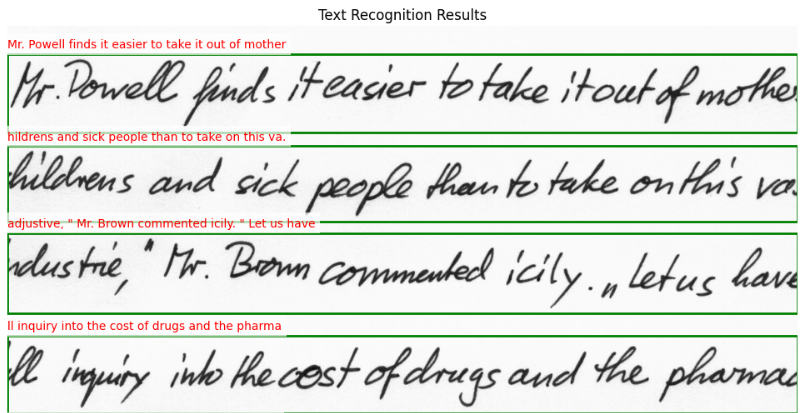 Text Recognition Results
Mr. Powell finds it easier to take it out of mother
Mr. Powell finds it easier to take it out of mothe
hildrens and sick people than to take on this va.
hildrens and sick people than to take on this va
adjustive, " Mr. Brown commented icily. " Let us have
ndustrie, " Mr. Brown commented icily. „ Let us have
ll inquiry into the cost of drugs and the pharma
ll inquiry into the cost of drugs and the pharmac